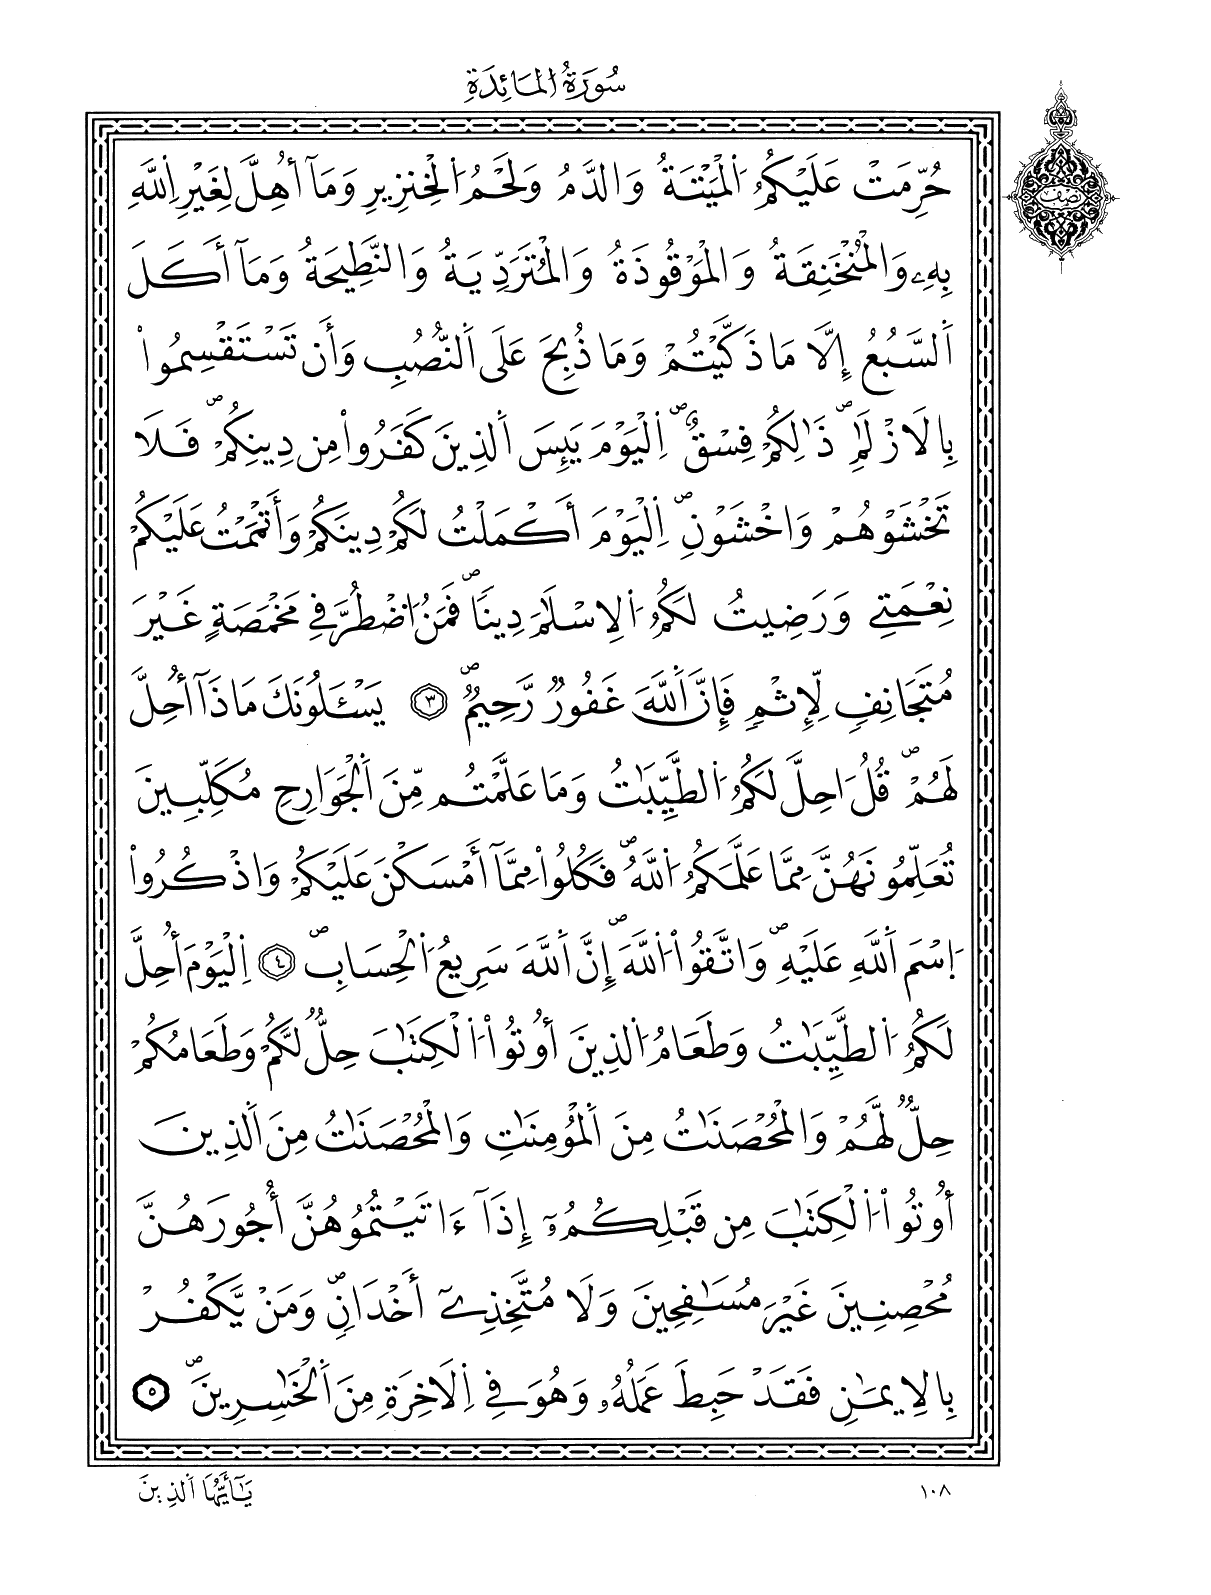 سُورَةُ الْمَائِدَةِ
نصف
حُرِّمَتْ عَلَيْكُمُ اَ۬لْمَيْتَةُ وَالدَّمُ وَلَحْمُ اُ۬لْخِنزِيرِ وَمَآ أُهِلَّ لِغَيْرِ اِ۬للَّهِ
بِهِۦ وَالْمُنْخَنِقَةُ وَالْمَوْقُوذَةُ وَالْمُتَرَدِّيَةُ وَالنَّطِيحَةُ وَمَآ أَكَلَ
اَ۬لسَّبُعُ إِلَّا مَا ذَكَّيْتُمْ وَمَا ذُبِحَ عَلَى اَ۬لنُّصُبِ وَأَن تَسْتَقْسِمُواْ
بِالَازْلَٰمِۖ ذَٰلِكُمْ فِسْقٌۖ اِ۬لْيَوْمَ يَئِسَ اَ۬لذِينَ كَفَرُواْ مِن دِينِكُمْۖ فَلَا
تَخْشَوْهُمْ وَاخْشَوْنِۖ اِ۬لْيَوْمَ أَكْمَلْتُ لَكُمْ دِينَكُمْ وَأَتْمَمْتُ عَلَيْكُمْ
نِعْمَتِے وَرَضِيتُ لَكُمُ اُ۬لِاسْلَٰمَ دِيناٗۖ فَمَنُ اُ۟ضْطُرَّ فِے مَخْمَصَةٍ غَيْرَ
مُتَجَانِفٖ لِّإِثْمٖ فَإِنَّ اَ۬للَّهَ غَفُورٞ رَّحِيمٞۖ ٣ يَسْـَٔلُونَكَ مَاذَآ أُحِلَّ
لَهُمْۖ قُلُ ا۟حِلَّ لَكُمُ اُ۬لطَّيِّبَٰتُ وَمَا عَلَّمْتُم مِّنَ اَ۬لْجَوَارِحِ مُكَلِّبِينَ
تُعَلِّمُونَهُنَّ مِمَّا عَلَّمَكُمُ اُ۬للَّهُۖ فَكُلُواْ مِمَّآ أَمْسَكْنَ عَلَيْكُمْ وَاذْكُرُواْ
اُ۪سْمَ اَ۬للَّهِ عَلَيْهِۖ وَاتَّقُواْ اُ۬للَّهَۖ إِنَّ اَ۬للَّهَ سَرِيعُ اُ۬لْحِسَابِۖ ٤ اِ۬لْيَوْمَ أُحِلَّ
لَكُمُ اُ۬لطَّيِّبَٰتُ وَطَعَامُ اُ۬لذِينَ أُوتُواْ اُ۬لْكِتَٰبَ حِلّٞ لَّكُمْ وَطَعَامُكُمْ
حِلّٞ لَّهُمْ وَالْمُحْصَنَٰتُ مِنَ اَ۬لْمُؤْمِنَٰتِ وَالْمُحْصَنَٰتُ مِنَ اَ۬لذِينَ
أُوتُواْ اُ۬لْكِتَٰبَ مِن قَبْلِكُمُۥٓ إِذَآ ءَاتَيْتُمُوهُنَّ أُجُورَهُنَّ
مُحْصِنِينَ غَيْرَ مُسَٰفِحِينَ وَلَا مُتَّخِذِےٓ أَخْدَانٖۖ وَمَنْ يَّكْفُرْ
بِالِايمَٰنِ فَقَدْ حَبِطَ عَمَلُهُۥ وَهُوَ فِے اِ۬لَاخِرَةِ مِنَ اَ۬لْخَٰسِرِينَۖ ٥
١٠٨
يَٰٓأَيُّهَا اَ۬لذِينَ